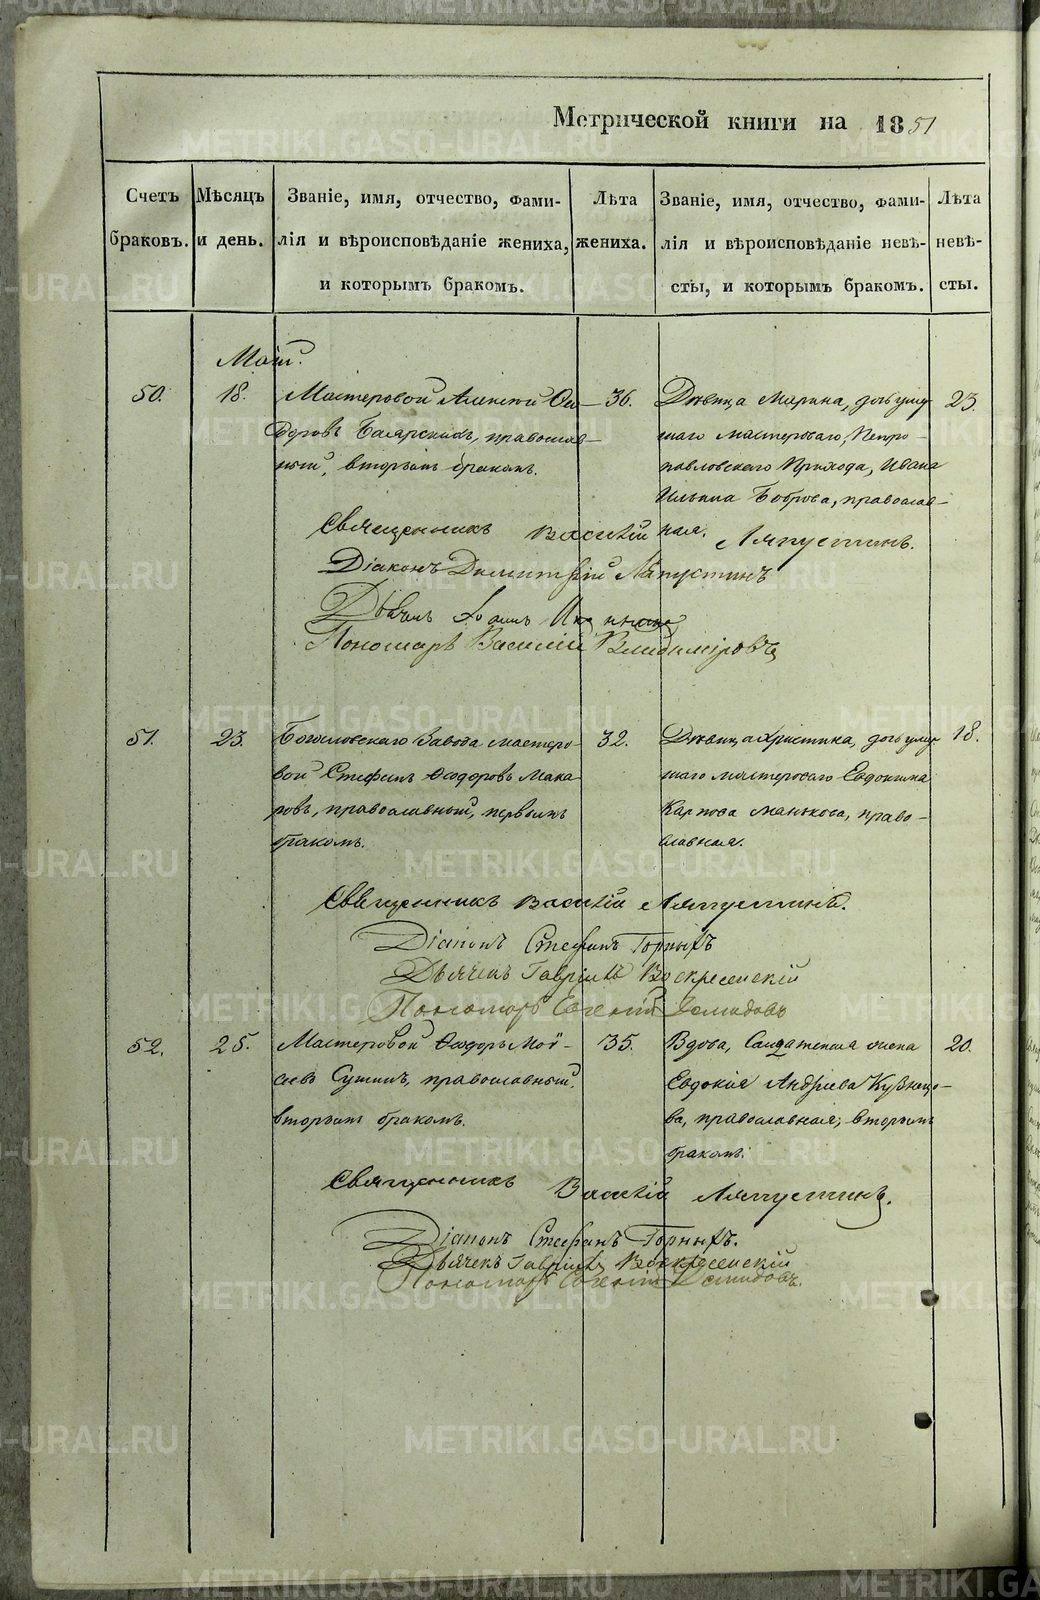 Метрической книги на 1851
Счетъ браковъ.
Мѣсяцъ и день.
Званіе, имя, отчество, фами-
лія и вѣроисповѣданіе жениха,
и которымъ бракомъ.
Лѣта жениха.
Званіе, имя, отчество, фами-
лія и вѣроисповѣданіе невѣ-
сты, и которымъ бракомъ.
Лѣта невѣ-
сты.
Маій.
50.
18.
Мастеровой Алексѣй Ѳео-
доровъ Боярскихъ, православ-
ный, вторымъ бракомъ.
36.
Дѣвица Марина, дочь умер
шаго мастероваго, Петро-
павловскаго Прихода, Ивана
Ильина Боброва, православ-
ная.
23.
Священникъ Василій Ляпустинъ.
Діаконъ Димитрій Ляпустинъ
Дьячекъ Іоаннъ
Пономарь Василій Владиміровъ
51.
23.
Богословскаго Завода мастеро-
вой Стефанъ Ѳеодоровъ Мака
ровъ, православный, первымъ
бракомъ.
32.
Дѣвица Христина, дочь умер
шаго мастероваго Евдокима
Карпова Манькова, право-
славная.
18.
Священникъ Василій Ляпустинъ.
Діаконъ Стефанъ Горныхъ
Дьячекъ Гавріилъ Воскресенскій
Пономарь Евгеній Демидовъ
52.
25.
Мастеровой Ѳеодоръ Мої-
сеевъ Сушинъ, православный,
вторымъ бракомъ.
35.
Вдова, Солдатская жена
Евдокія Андреева Кузнецо-
ва, православная, вторымъ
бракомъ.
20.
Священникъ Василій Ляпустинъ.
Діаконъ Стефанъ Горныхъ.
Дьячекъ Гавріилъ Воскресенскій
Пономарь Евгеній Демидовъ.
METRIKI.GASO-URAL.RU